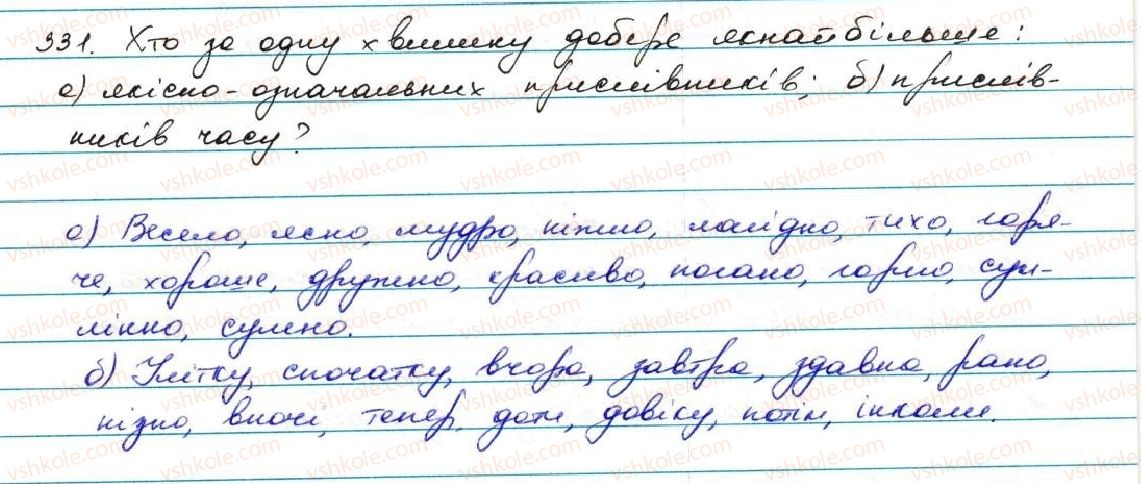 331. Хто за одну хвилину добере якнайбільше:
а) якісно-означальних прислівників; б) прислів-
ників часу?
а) Весело, ясно, мудро, ніжно, лагідно, тихо, гаря-
че, хороше, дружно, красиво, погано, гарно, сум-
лінно, сумно.
б) Улітку, спочатку, вчора, завтра, здавна, рано,
пізно, вночі, тепер, доти, довіку, потім, інколи.